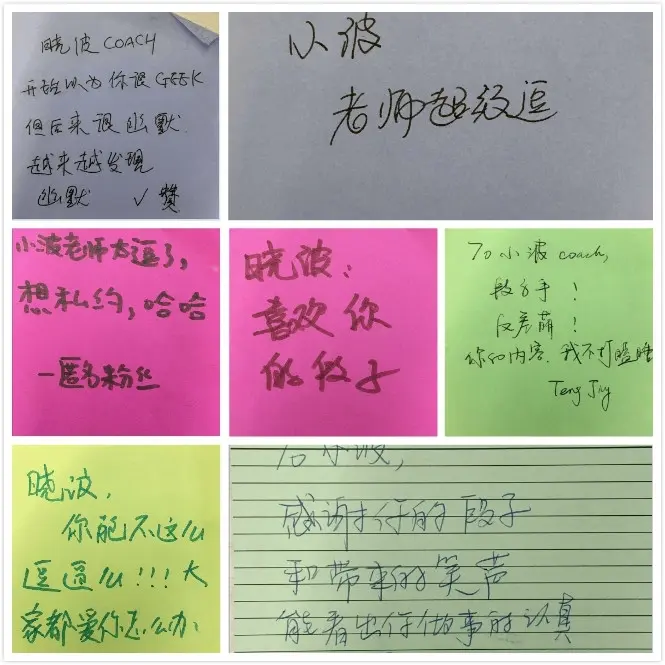 晓波 COACH
开始以为你很 GEEK
但后来很幽默
越来越发现
幽默 ✓ 赞
小波
老师超级逗
小波老师太逗了,
想私约,哈哈
—匿名粉丝
晓波:
喜欢你
的段子
To 小波 coach,
段子手!
反差萌!
你的内容,我不打瞌睡
Teng Jay
晓波,
你能不这么
逗逗么!!!大
家都爱你怎么办
To 小波,
感谢你的段子
和带来的笑声
能看出你做事的认真